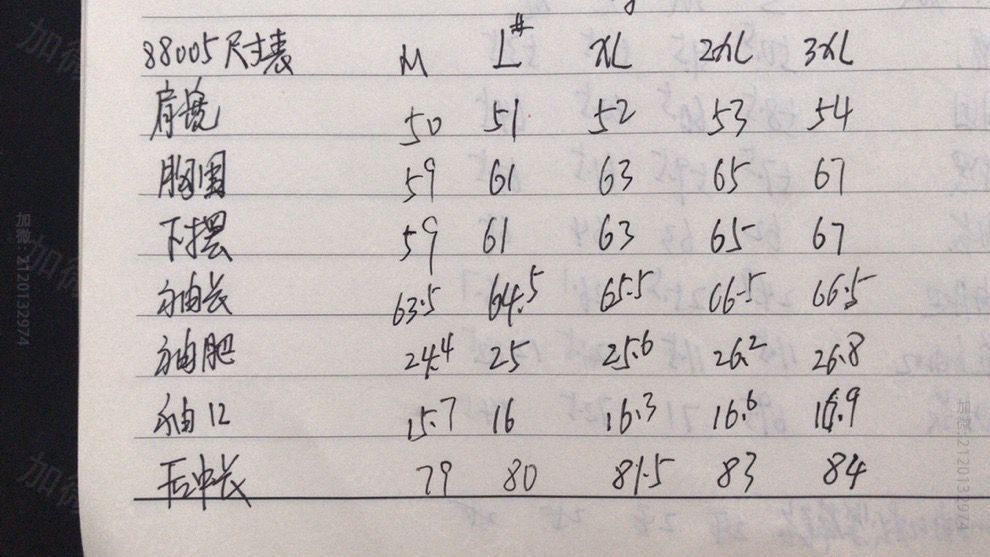 88005尺寸表 M L# XL 2XL 3XL
肩宽 50 51 52 53 54
胸围 59 61 63 65 67
下摆 59 61 63 65 67
袖长 63.5 64.5 65.5 66.5 66.5
袖肥 24.4 25 25.6 26.2 26.8
袖口 15.7 16 16.3 16.6 16.9
后中长 79 80 81.5 83 84
加微: X120132974